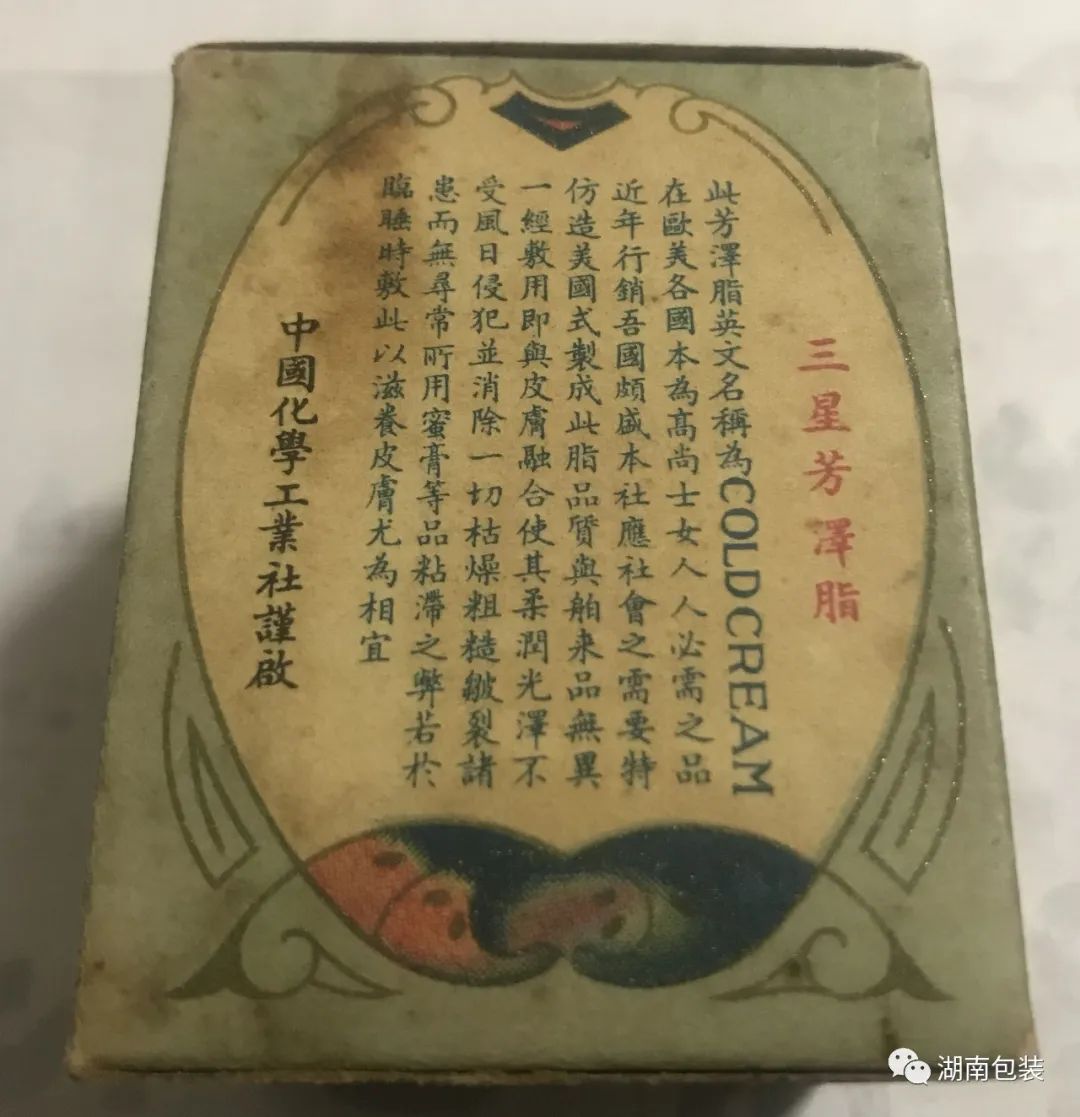 三星芳澤脂
此芳澤脂英文名稱為COLD CREAM
在歐美各國本為高尚士女人人必需之品
近年行銷吾國頗盛本社應社會之需要特
仿造美國式製成此脂品質與舶来品無異
一經敷用即與皮膚融合使其柔潤光澤不
受風日侵犯並消除一切枯燥粗糙皴裂諸
患而無尋常所用蜜膏等品粘滯之弊若於
臨睡時敷此以滋養皮膚尤為相宜
中國化學工業社謹啟
湖南包装